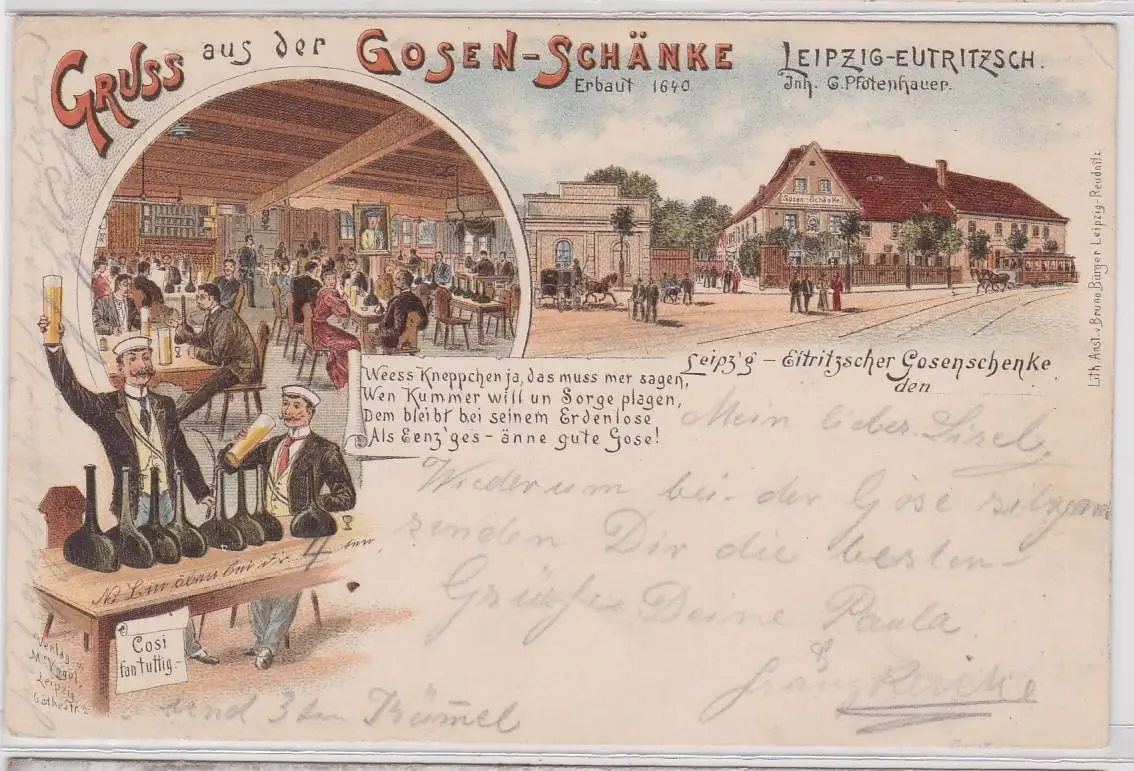 GRUSS aus der GOSEN-SCHÄNKE
Erbaut 1640
LEIPZIG-EUTRITZSCH.
Inh. G. Pfotenhauer.
Gosen-Schänke
Leipz'g – Eitritzscher Gosenschenke
den
Weess Kneppchen ja, das muss mer sagen,
Wen Kummer will un Sorge plagen,
Dem bleibt bei seinem Erdenlose
Als Eenz'ges – änne gute Gose!
Mein lieber Lisel,
Wiederum bei der Gose
senden Dir die besten
Grüsse Deine Paula
&
und 3 ten
No Bin äben bei dr 4 ten
Cosi
fan tuttig.-
Verlag v.
M. Vogel
Leipzig
Göthestr. 2
Lith. Anst. v. Bruno Bürger Leipzig-Reudnitz.